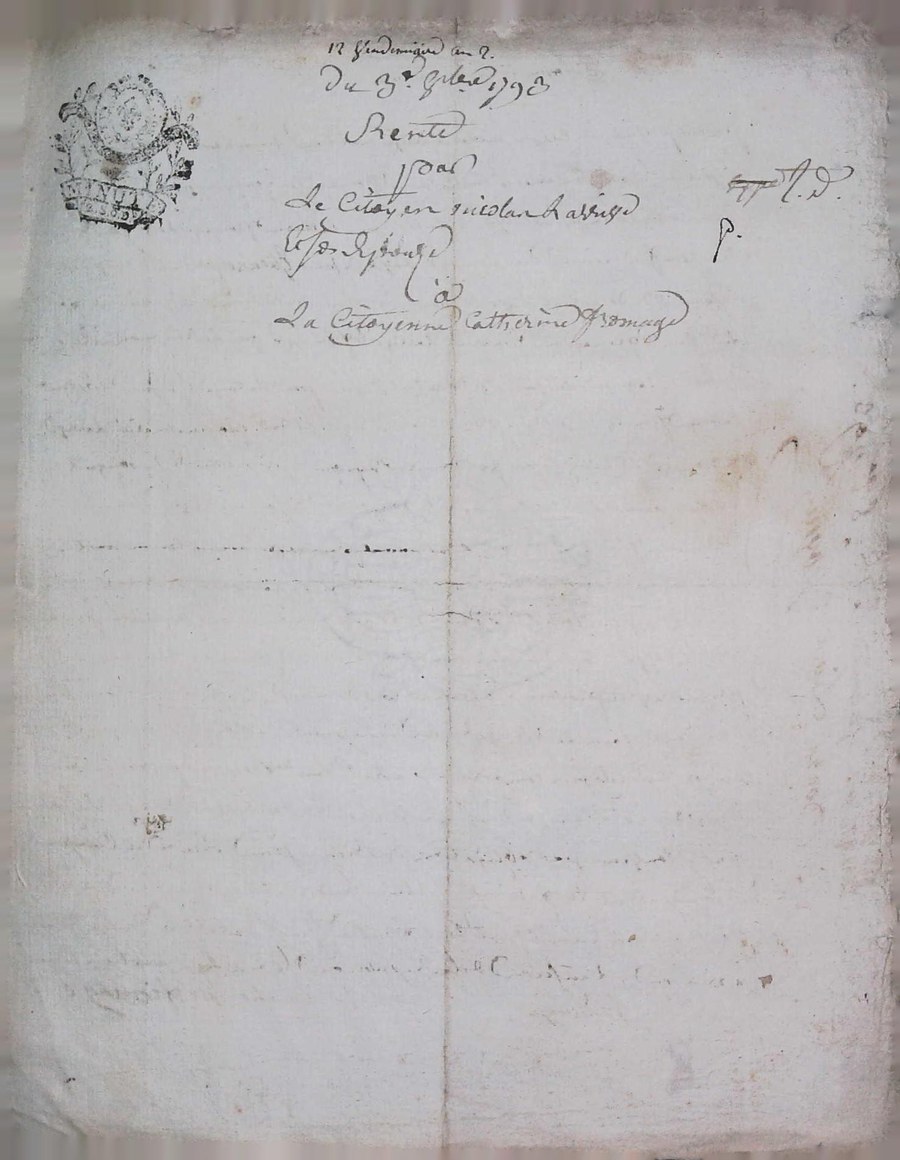 12 Vendemiaire an 2.
Du 3e 8bre 1793
Rente
par
Le Citoyen nicolas
et son Epouze
à
La Citoyenne Catherine fromage
MINUTE